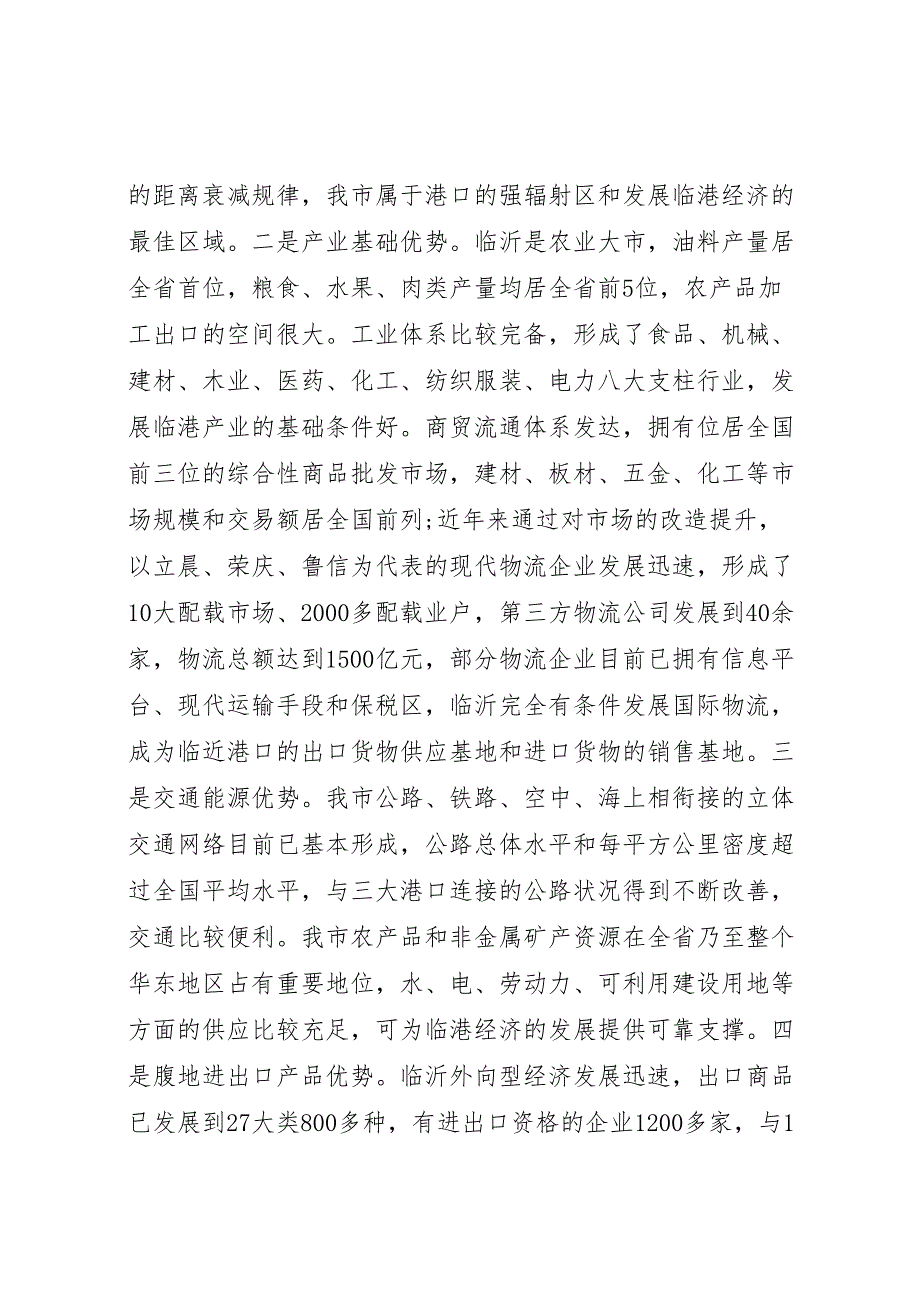 的距离衰减规律，我市属于港口的强辐射区和发展临港经济的
最佳区域。二是产业基础优势。临沂是农业大市，油料产量居
全省首位，粮食、水果、肉类产量均居全省前5位，农产品加
工出口的空间很大。工业体系比较完备，形成了食品、机械、
建材、木业、医药、化工、纺织服装、电力八大支柱行业，发
展临港产业的基础条件好。商贸流通体系发达，拥有位居全国
前三位的综合性商品批发市场，建材、板材、五金、化工等市
场规模和交易额居全国前列;近年来通过对市场的改造提升，
以立晨、荣庆、鲁信为代表的现代物流企业发展迅速，形成了
10大配载市场、2000多配载业户，第三方物流公司发展到40余
家，物流总额达到1500亿元，部分物流企业目前已拥有信息平
台、现代运输手段和保税区，临沂完全有条件发展国际物流，
成为临近港口的出口货物供应基地和进口货物的销售基地。三
是交通能源优势。我市公路、铁路、空中、海上相衔接的立体
交通网络目前已基本形成，公路总体水平和每平方公里密度超
过全国平均水平，与三大港口连接的公路状况得到不断改善，
交通比较便利。我市农产品和非金属矿产资源在全省乃至整个
华东地区占有重要地位，水、电、劳动力、可利用建设用地等
方面的供应比较充足，可为临港经济的发展提供可靠支撑。四
是腹地进出口产品优势。临沂外向型经济发展迅速，出口商品
已发展到27大类800多种，有进出口资格的企业1200多家，与1